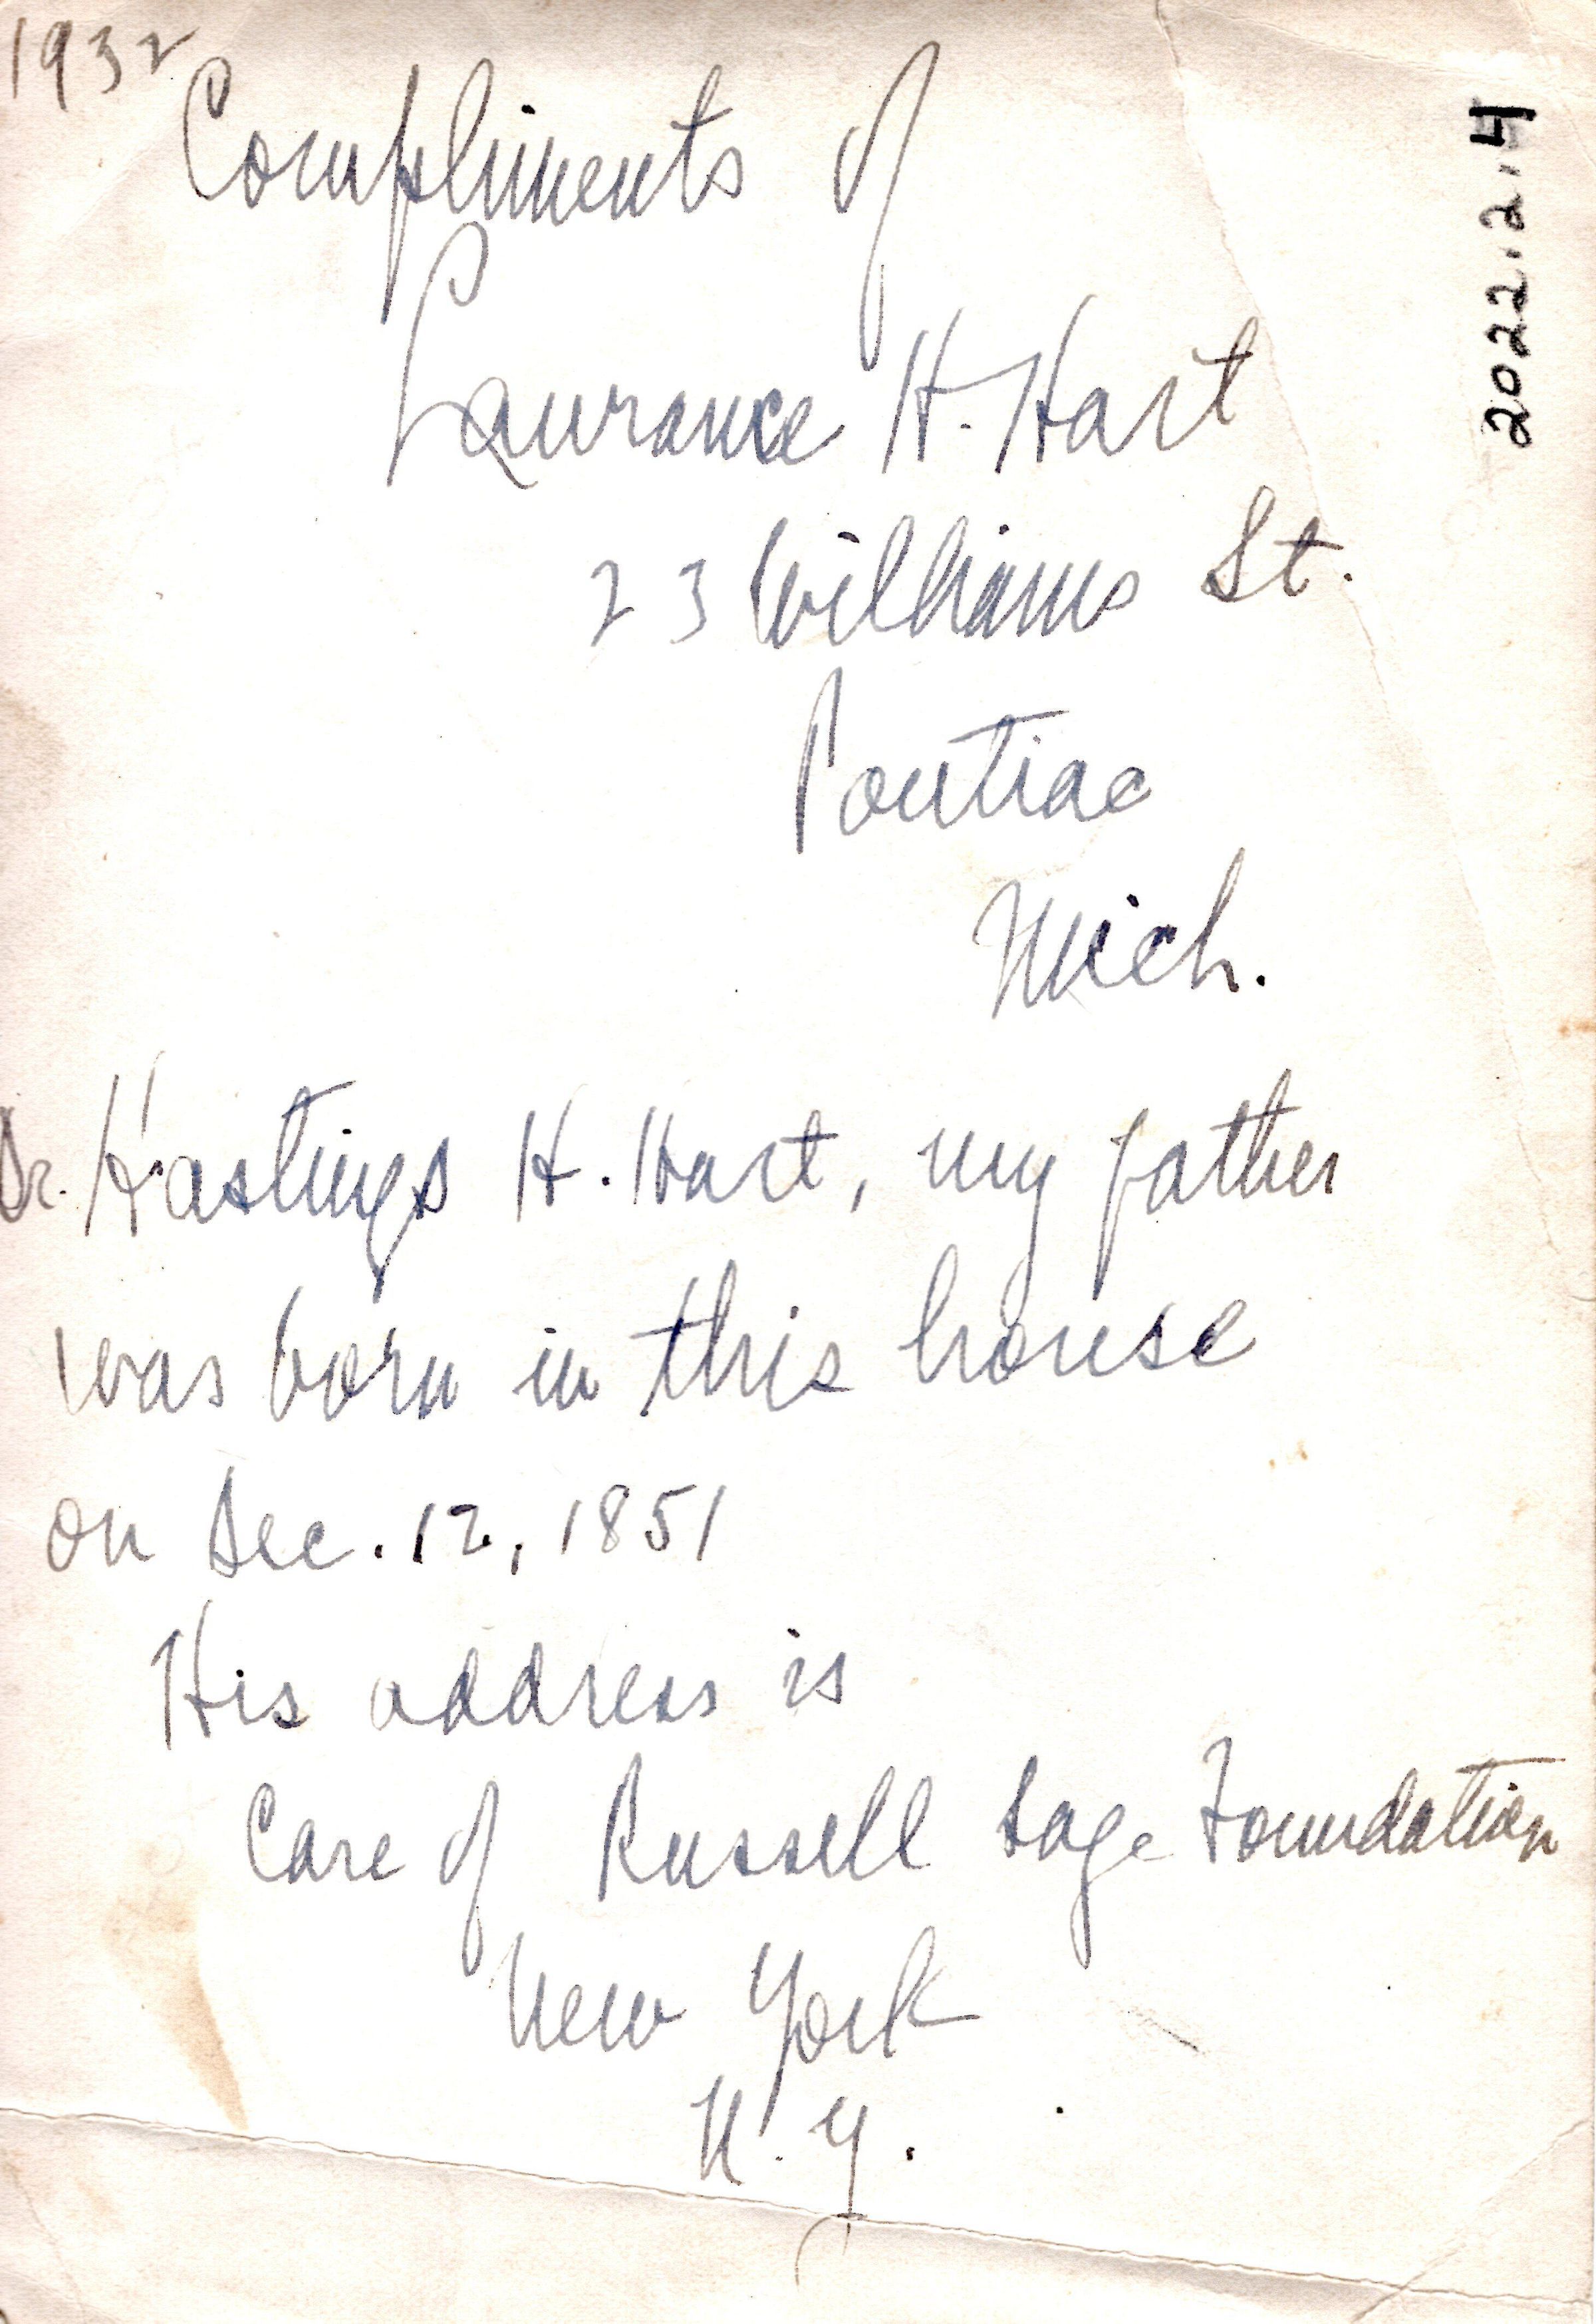 1932
Compliments of
Laurance H. Hart
23 Williams St.
Pontiac
Mich.
Dr. Hastings H. Hart, my father
was born in this house
on Dec. 12, 1851
His address is
Care of Russell Sage Foundation
New York
N.Y.
2022.2.4